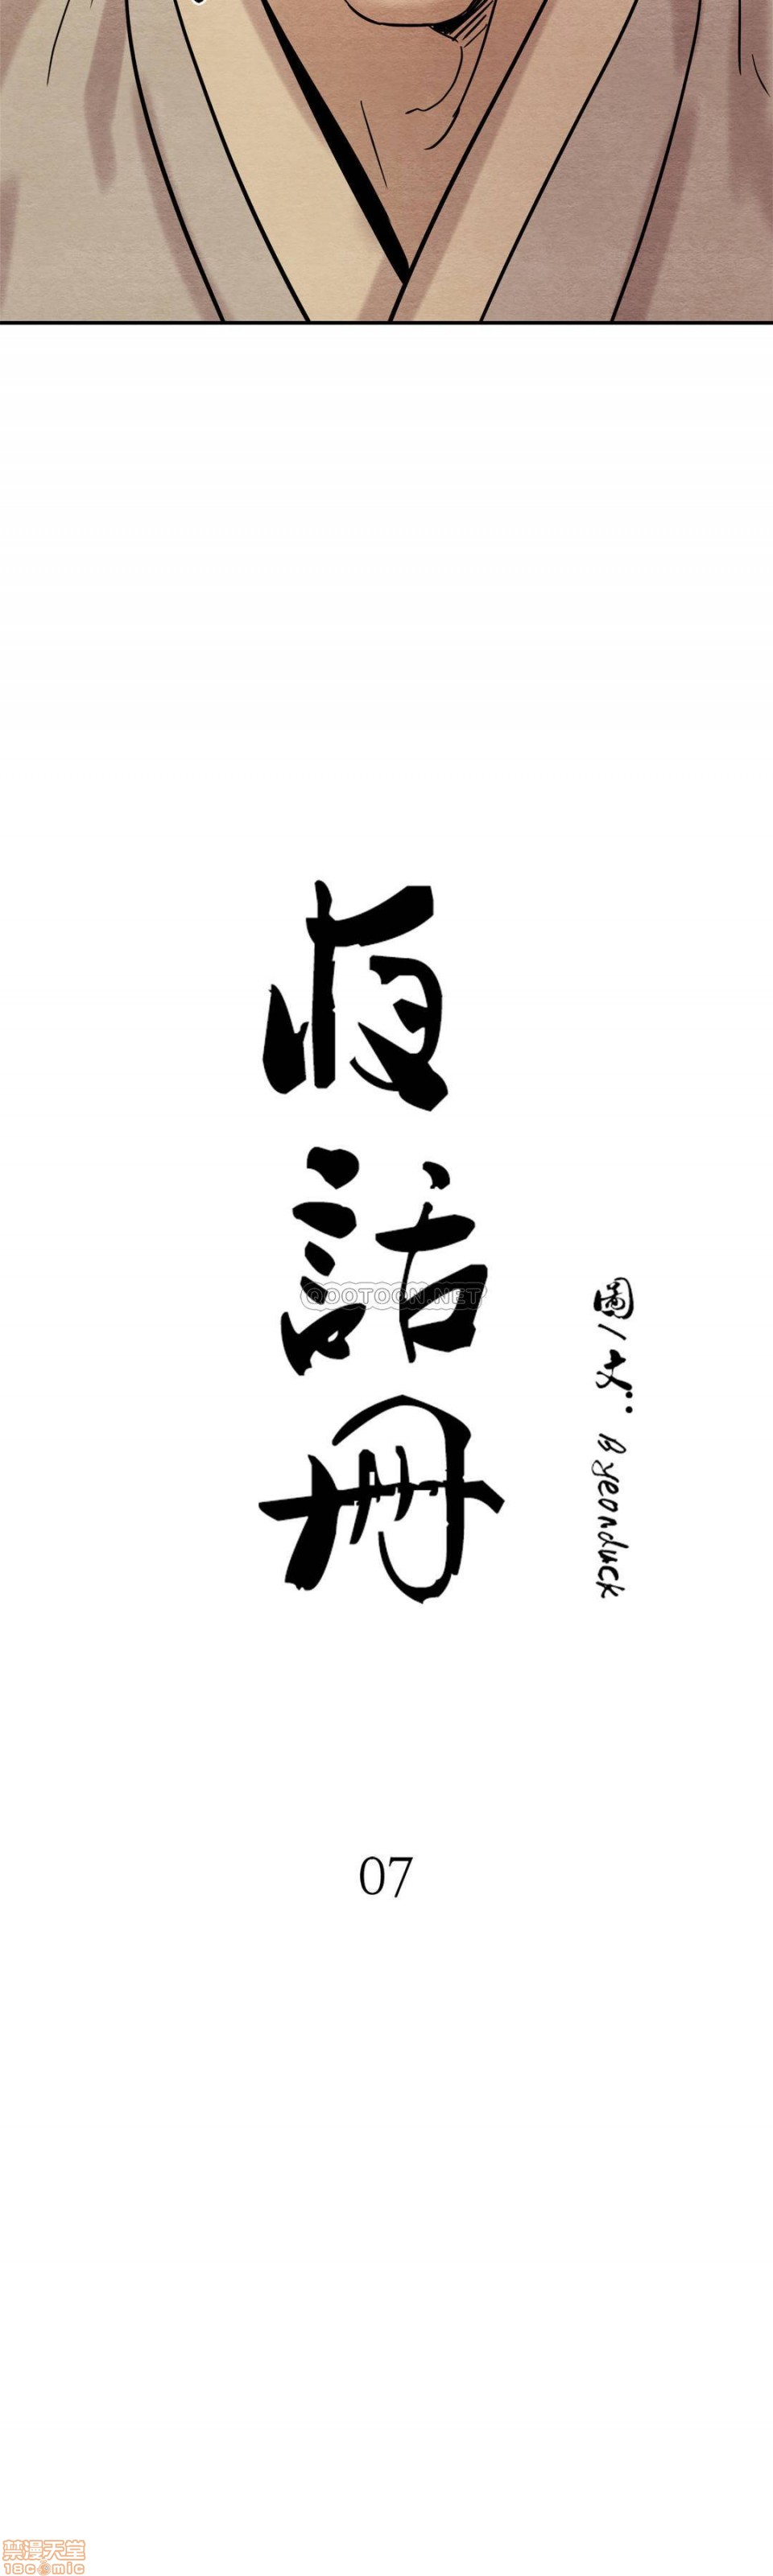 夜話冊
圖/文: Byeonduck
QOOTOON.NET
07
禁漫天堂
18comic